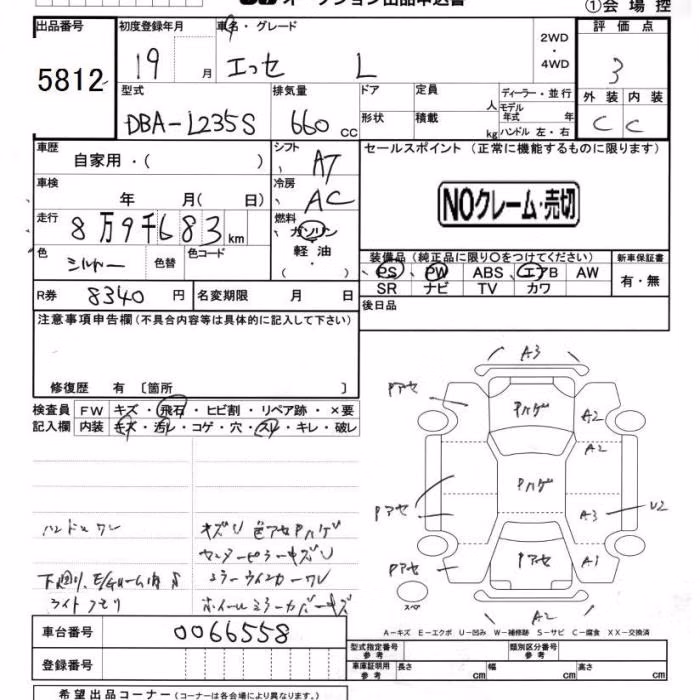 オークション出品申込書
①会場控
出品番号 初度登録年月 車名・グレード 2WD ・ 4WD 評価点
5812 19 月 エッセ L 3
型式 排気量 ドア 定員 人 ディーラー・並行 外装 内装
DBA-L235S 660 cc 形状 積載 kg モデル年式 年 ハンドル 左・右 C C
車歴 自家用・( ) シフト AT セールスポイント (正常に機能するものに限ります)
車検 年 月( 日) 冷房 AC
NOクレーム・売切
走行 8万9千683 km 燃料 ガソリン 軽油 ・ ( )
色 シルバー 色替 色コード
装備品 (純正品に限り○をつけてください) 新車保証書
PS PW ABS エアB AW 有・無
SR ナビ TV カワ
R券 8340 円 名変期限 月 日 後日品
注意事項申告欄(不具合内容等は具体的に記入して下さい)
修復歴 有 〔箇所 〕
検査員 FW キズ・飛石・ヒビ割・リペア跡・×要
記入欄 内装 キズ・汚レ・コゲ・穴・スレ・キレ・破レ
A3
Pアセ Pハゲ A2
A2
Pハゲ
Pアセ A3 U2
Pアセ Pアセ A1
スペア
A2
ハンドルスレ キズU 色アセPハゲ
センターピラーキズU
下廻り、E/gルーム内S ミラーウインカーワレ
ライトクモリ ホイールミラーカバーキズ
A-キズ E-エクボ U-凹み W-補修跡 S-サビ C-腐食 XX-交換済
車台番号 0066558
型式指定番号 参考 類別区分番号 参考
登録番号 車庫証明用 参考 長さ cm 幅 cm 高さ cm
希望出品コーナー (コーナーは各会場により異なります。)